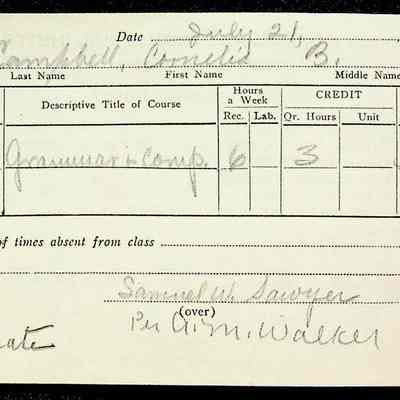 Date July 21,
Campbell, Cornelia B.
Last Name First Name Middle Name
Descriptive Title of Course Hours a Week CREDIT
Rec. Lab. Qr. Hours Unit
Grammar & Comp. 6 3
of times absent from class
Samuel W. Sawyer
(over)
Per A. M. Walker